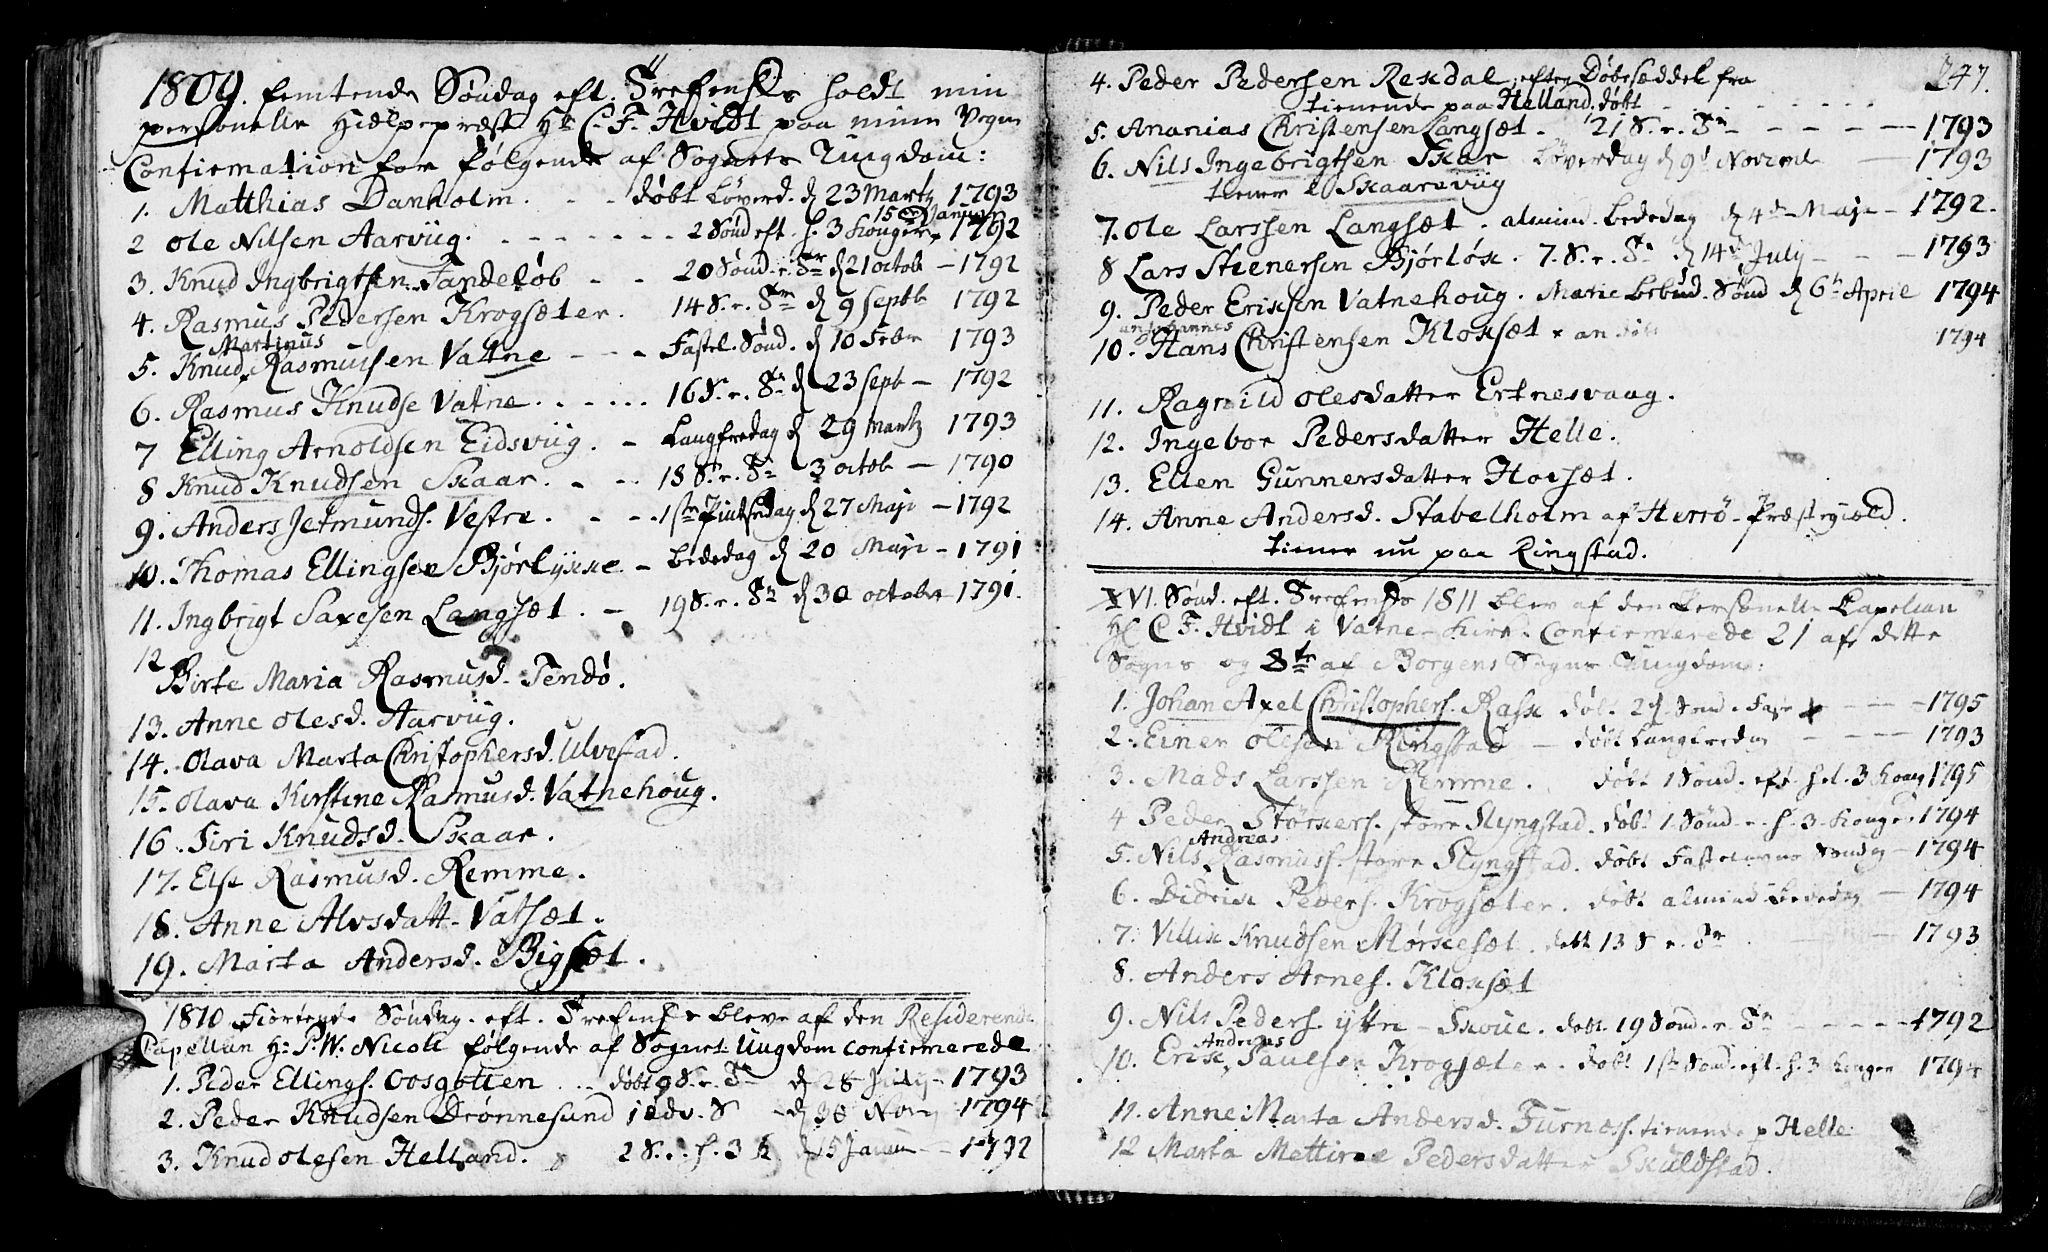 1809. femtende Søndag eft. Trefoensh holdt min
personelle Hielpepræst Hr C. F. Hvidt paa mine Vegne
Confirmation for følgende af Sognets Ungdom:
1. Matthias Danholm. - - døbt Løverd. d 23 Martz 1793
15de Januar
2 Ole Nilsen Aarviig. - - - - - - - 2 Sønd eft. h. 3 Konger 1792
3. Knud Ingbrigtsen Tandeløb - - 20 Sønd. e. Tr d 21 octob - 1792
4. Rasmus Pedersen Krogsæter. 14 S. e. Tr d 9 Septb 1792
Martinus
5. Knud Rasmussen Vatne - - - Fastel. Sønd. d 10 Febr 1793
6. Rasmus Knudse Vatne. - - - ... 16 S. e. Tr d 23 Sept - 1792
7 Elling Arnoldsen Eidsviig. - Langfredag d 29 Martz 1793
8 Knud Knudsen Skaar. - - 18 S. e. Tr 3 octob - 1790
9. Anders Jetmunds. Vestre. - - - 1ste Pintsedag d 27 Maji - 1792
10. Thomas Ellingsen Bjørlykke - Bededag d 20 Maji - 1791
11. Ingbrigt Saxesen Langsæt. - 19 S. e. Tr d 30 october 1791.
12
Birte Maria Rasmusd. Tendø.
13. Anne Olesd. Aarviig.
14. Olava Marta Christophersd. Ulvestad.
15. Olava Kirstine Rasmusd. Vatnehoug.
16. Siri Knudsd. Skaar.
17. Else Rasmusd. Remme.
18. Anne Alvsdatt. Vatsæt.
19. Marta Andersd. Bigsæt.
1810 Fiortende Søndag. eft. Trefensh bleve af den Residerende
Capellan Hr P. W. Nicoli følgende af Sognets Ungdom confirmerede
1. Peder Ellings. Oosgotten . . - døbt 9 S. e. Tr d 28 July - 1793
2. Peder Knudsen Drønnesund 1 adv. S - d 30 Nov 1794
3. Knud Olesen Helland. 2 S. e. h. 3 K d 15 Januar - 1792
247.
4. Peder Pedersen Rekdal, efter Døbesæddel fra
tienende paa Helland. døbt - - - - - - -
5. Ananias Christensen Langsæt. - 21 S. e. Tr - - - - - 1793
6. Nils Ingebrigtsen Skar Løverdag d 9d Novemb - 1793
tiener i Skaarsviig
7. Ole Larssen Langsæt. almind. Bededag d 4de Maji - 1792.
8 Lars Stenersen Bjørløk. 7. S. e. Tr d 14d July - - - 1793
9. Peder Eriksen Vatnehoug. Marie Bebud. Sønd d 6te April 1794
Johannes
10. Hans Christensen Kloksæt - døbt 1794
11. Ragnild Olesdatter Ertnesvaag.
12. Ingebor Pedersdatter Helle.
13. Ellen Gunnersdatter Horsæt.
14. Anne Andersd. Stabelholm af Herrø Præstegield.
tiener nu paa Ringstad.
XVI. Sønd. eft. Trefensh 1811 blev af den Personelle Capellan
Hr C. F. Hvidt i Vatne Kirke Confirmerede 21 af dette
Sogns og 8te af Borgens Sogns Ungdom:
1. Johan Axel Christophers. Rask døbt 2d Sønd. e Faste - - - 1795
2. Einer Olesen Ringstad - døbt Langfredag - - - - 1793
3. Mads Larssen Remme. døbt 1 Sønd. eft. hel. 3 Kong 1795
4 Peder Størkers. store Slyngstad. døbt 1 Sønd. e. h. 3 Konger 1794
Andreas
5. Nils Rasmuss. store Slyngstad. døbt Fastelavns Søndag - 1794
6. Didrik Peders. Krogsæter. døbt almind Bededag - 1794
7. Villik Knudsen Mørkesæt. døbt 13 S e. Tr - 1793
8. Anders Arnes. Kloksæt
9. Nils Peders. yttre - Skoue. døbt 19 Sønd. e. Tr - - - - 1792
Andreas
10. Erik Paulsen Krogsæter. døbt 1ste Sønd. eft. h. 3 Konger 1794
11. Anne Marta Andersd. Furnæs. tienende p Helle
12 Marta Mettine Pedersdatter Skuldstad.